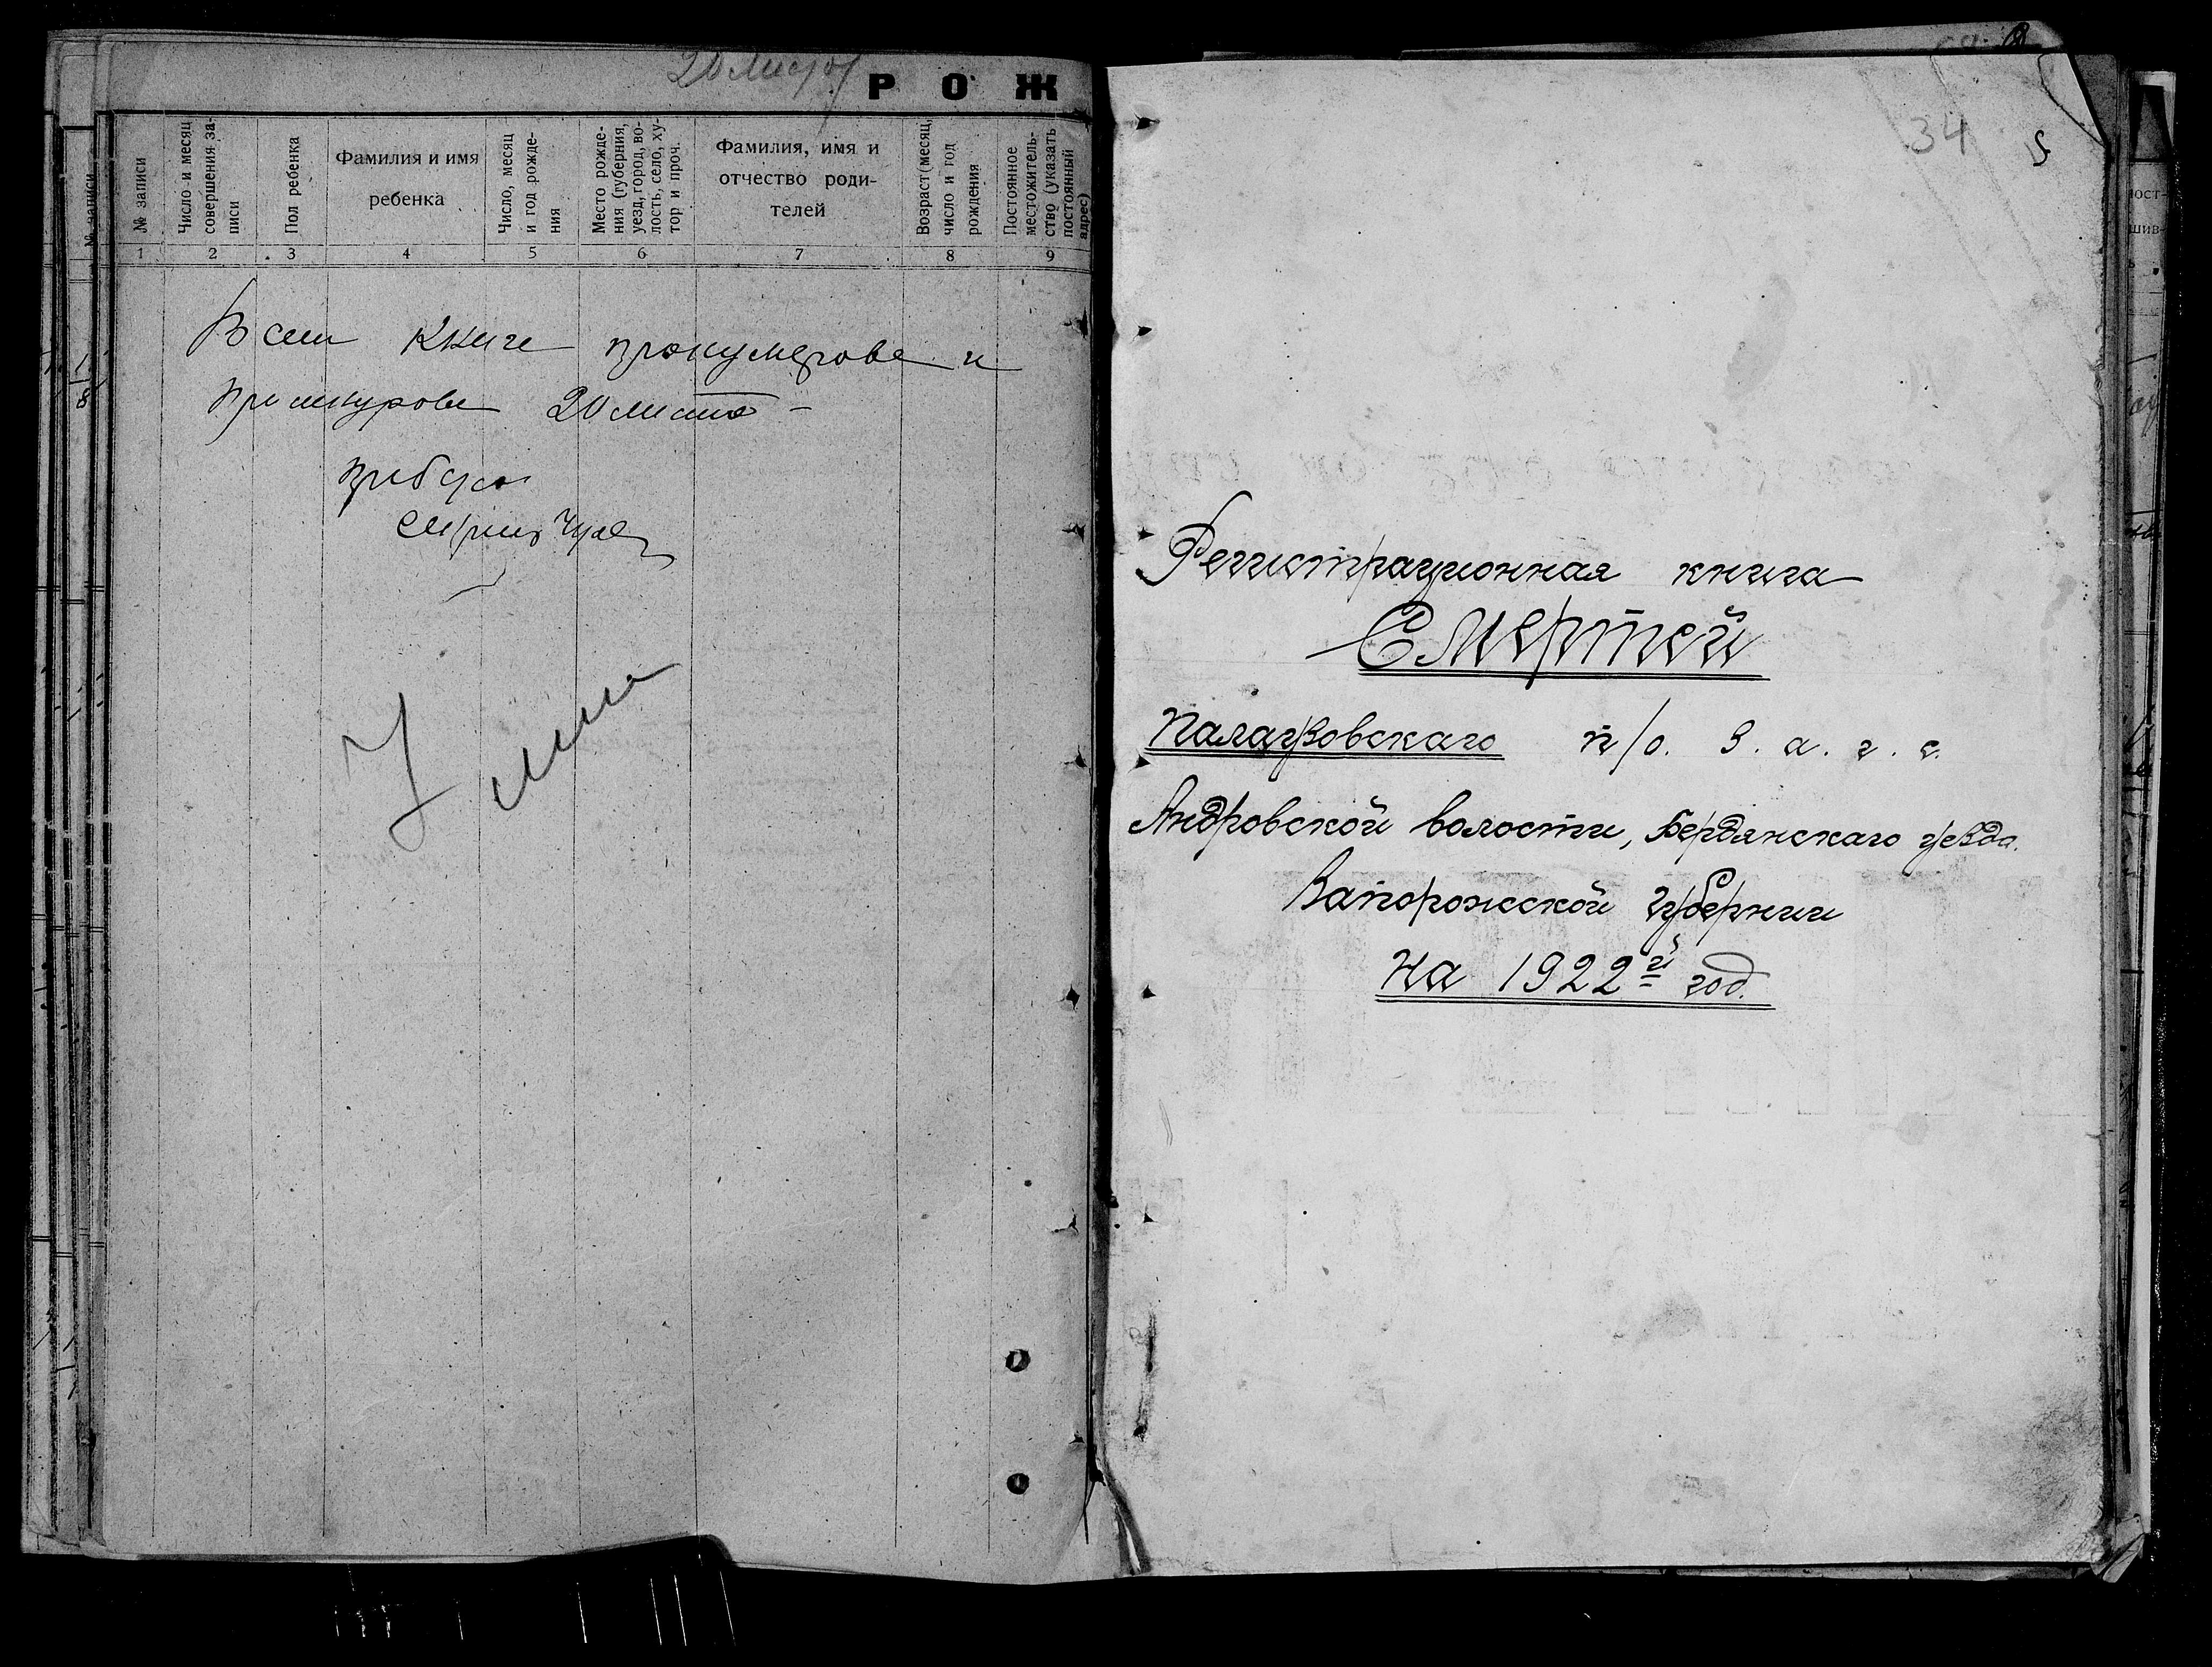 20 листов
Р О Ж
№ записи
Число и месяц совершения за-писи
Пол ребенка
Фамилия и имя
ребенка
Число, месяц и год рожде-ния
Место рожде-ния (губерния, уезд, город, во-лость, село, ху-тор и проч.
Фамилия, имя и
отчество роди-
телей
Возраст (месяц, число и год рождения
Постоянное местожитель-ство (указать постоянный адрес)
1 2 3 4 5 6 7 8 9
В сей книге пронумерове и
20 листов
34
Регистрационная книга
Смертей
п/о. З. а. г. с.
Андровской волости, Бердянскаго уезда.
Запорожской губернии
на 1922й год.